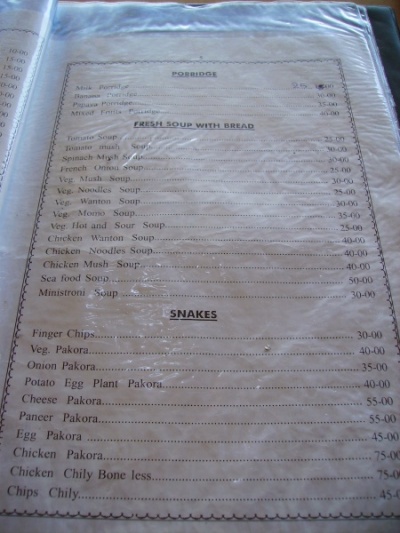 PORRIDGE
Milk Porridge
Banana Porridge 30-00
Papaya Porridge 35-00
Mixed Fruits Porridge 40-00
FRESH SOUP WITH BREAD
Tomato Soup
Tomato mush Soup 30-00
Spinach Mush Soup 30-00
French Onion Soup 25-00
Veg. Mush Soup 30-00
Veg. Noodles Soup 25-00
Veg. Wanton Soup 30-00
Veg. Momo Soup 35-00
Veg. Hot and Sour Soup 25-00
Chicken Wanton Soup 40-00
Chicken Noodles Soup 40-00
Chicken Mush Soup 40-00
Sea food Soup 50-00
Ministroni Soup 30-00
SNAKES
Finger Chips 30-00
Veg. Pakora 40-00
Onion Pakora 35-00
Potato Egg Plant Pakora 40-00
Cheese Pakora 55-00
Paneer Pakora 55-00
Egg Pakora 45-00
Chicken Pakora 75-00
Chicken Chily Bone less 75-00
Chips Chily